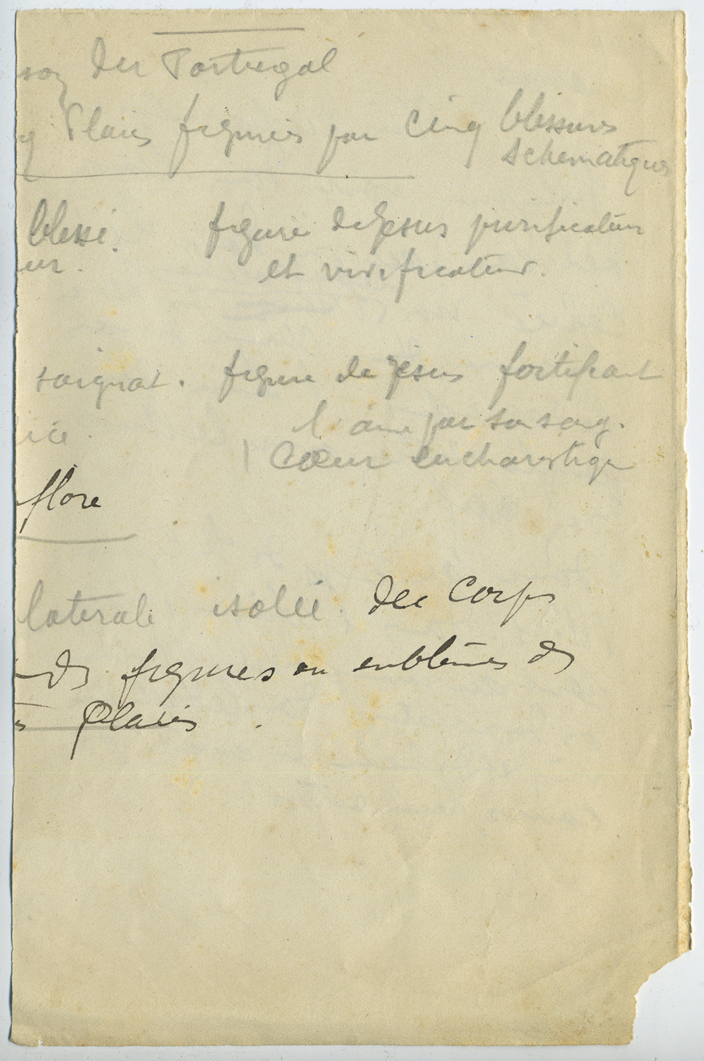 du Portugal
Plaies figurées par cinq blessures
schematiques
blessé. figure de Jesus purificateur
eur. et vivificateur.
saignat. figure de Jesus fortifiant
l'ame par son sang.
Cœur eucharistiqe
flore
laterale isolée du corps
des figures ou emblèmes des
Plaies.